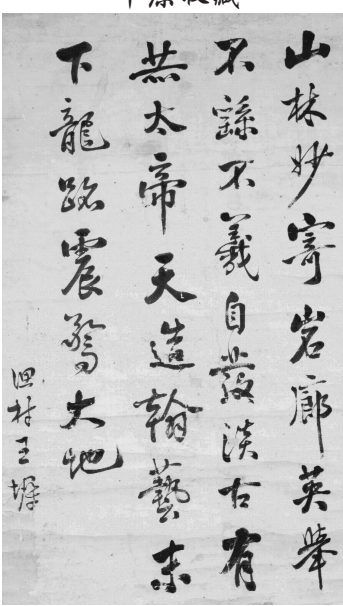 山林妙寄岩廊英舉
不繇不羲自發淡古有
燕太帝天造翰藝末
下龍跳震驚大地
王墀